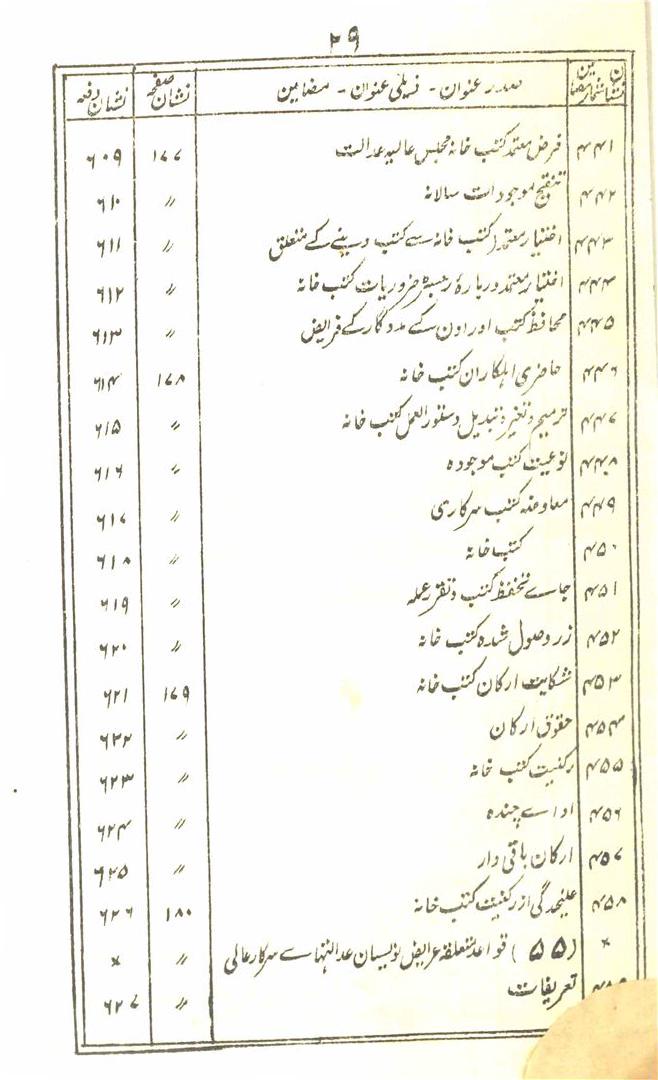 ۲۹
نشان شمار مضامین | صدر عنوان - ذیلی عنوان - مضامین | نشان صفحہ | نشان دفعہ
۴۴۱ | فرض معتمد کتب خانہ مجلس عالیہ عدالت | ۱۷۷ | ۶۰۹
۴۴۲ | تنقیح موجودات سالانہ | // | ۶۱۰
۴۴۳ | اختیار معتمد کتب خانہ سے کتب دینے کے متعلق | // | ۶۱۱
۴۴۴ | اختیار معتمد دربارۂ رجسٹر ضروریات کتب خانہ | // | ۶۱۲
۴۴۵ | محافظ کتب اور اون کے مددگار کے فرایض | // | ۶۱۳
۴۴۶ | حاضری اہلکاران کتب خانہ | ۱۷۸ | ۶۱۴
۴۴۷ | ترمیم و تغیر و تبدیل دستور العمل کتب خانہ | // | ۶۱۵
۴۴۸ | نوعیت کتب موجودہ | // | ۶۱۶
۴۴۹ | معاوضہ کتب سرکاری | // | ۶۱۷
۴۵۰ | کتب خانہ | // | ۶۱۸
۴۵۱ | جاے تحفظ کتب و تقرر عملہ | // | ۶۱۹
۴۵۲ | زر وصول شدہ کتب خانہ | // | ۶۲۰
۴۵۳ | شکایت ارکان کتب خانہ | ۱۷۹ | ۶۲۱
۴۵۴ | حقوق ارکان | // | ۶۲۲
۴۵۵ | رکنیت کتب خانہ | // | ۶۲۳
۴۵۶ | اداے چندہ | // | ۶۲۴
۴۵۷ | ارکان باقی دار | // | ۶۲۵
۴۵۸ | علیحدگی از رکنیت کتب خانہ | ۱۸۰ | ۶۲۶
× | (۵۵) قواعد متعلقہ عرایض نویسان عدالتہاے سرکار عالی | // | ×
تعریفات | // | ۶۲۷